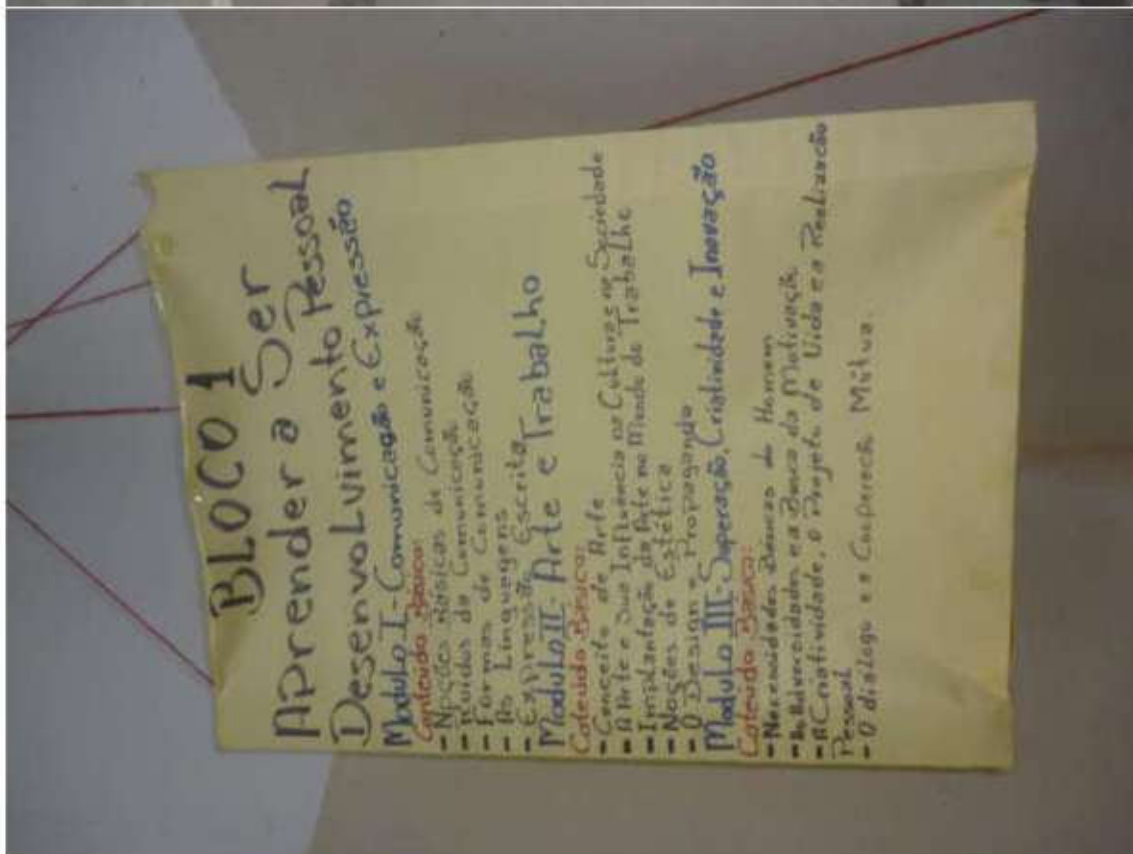 BLOCO 1
Aprender a Ser
Desenvolvimento Pessoal
Modulo I - Comunicação e Expressão
Conteúdo Básico:
- Noções Básicas de Comunicação
- Ruídos da Comunicação
- Formas de Comunicação
- As Linguagens
- Expressão Escrita
Modulo II - Arte e Trabalho
Coteúdo Básico:
- Conceito de Arte
- A Arte e Sua Influência na Cultura e na Sociedade
- Implantação da Arte no Mundo do Trabalho
- Noções de Estética
- O Design e Propaganda
Modulo III - Superação, Criatividade e Inovação
Coteúdo Básico:
- Necessidades Básicas do Homem
- Adversidades e a Busca da Motivação
- A Criatividade, o Projeto de Vida e a Realização
Pessoal
- O dialogo e a Mútua.